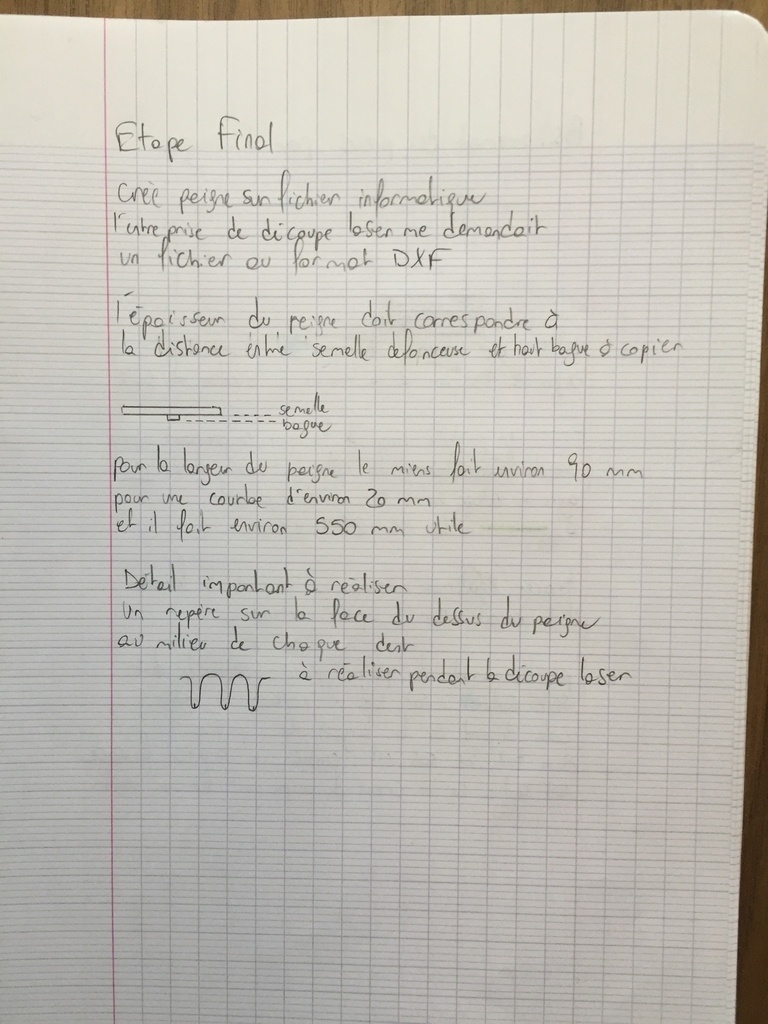 Etape Final
Créé peigne sur fichier informatique
l'entreprise de découpe laser me demandait
un fichier au format DXF
l'épaisseur du peigne doit correspondre à
la distance entre semelle defonceuse et haut bague à copier
semelle
bague
pour la largeur du peigne le miens fait environ 90 mm
pour une courbe d'environ 20 mm
et il fait environ 550 mm utile
Détail important à réaliser
un repère sur la face du dessus du peigne
au milieu de chaque dent
à réaliser pendant la découpe laser